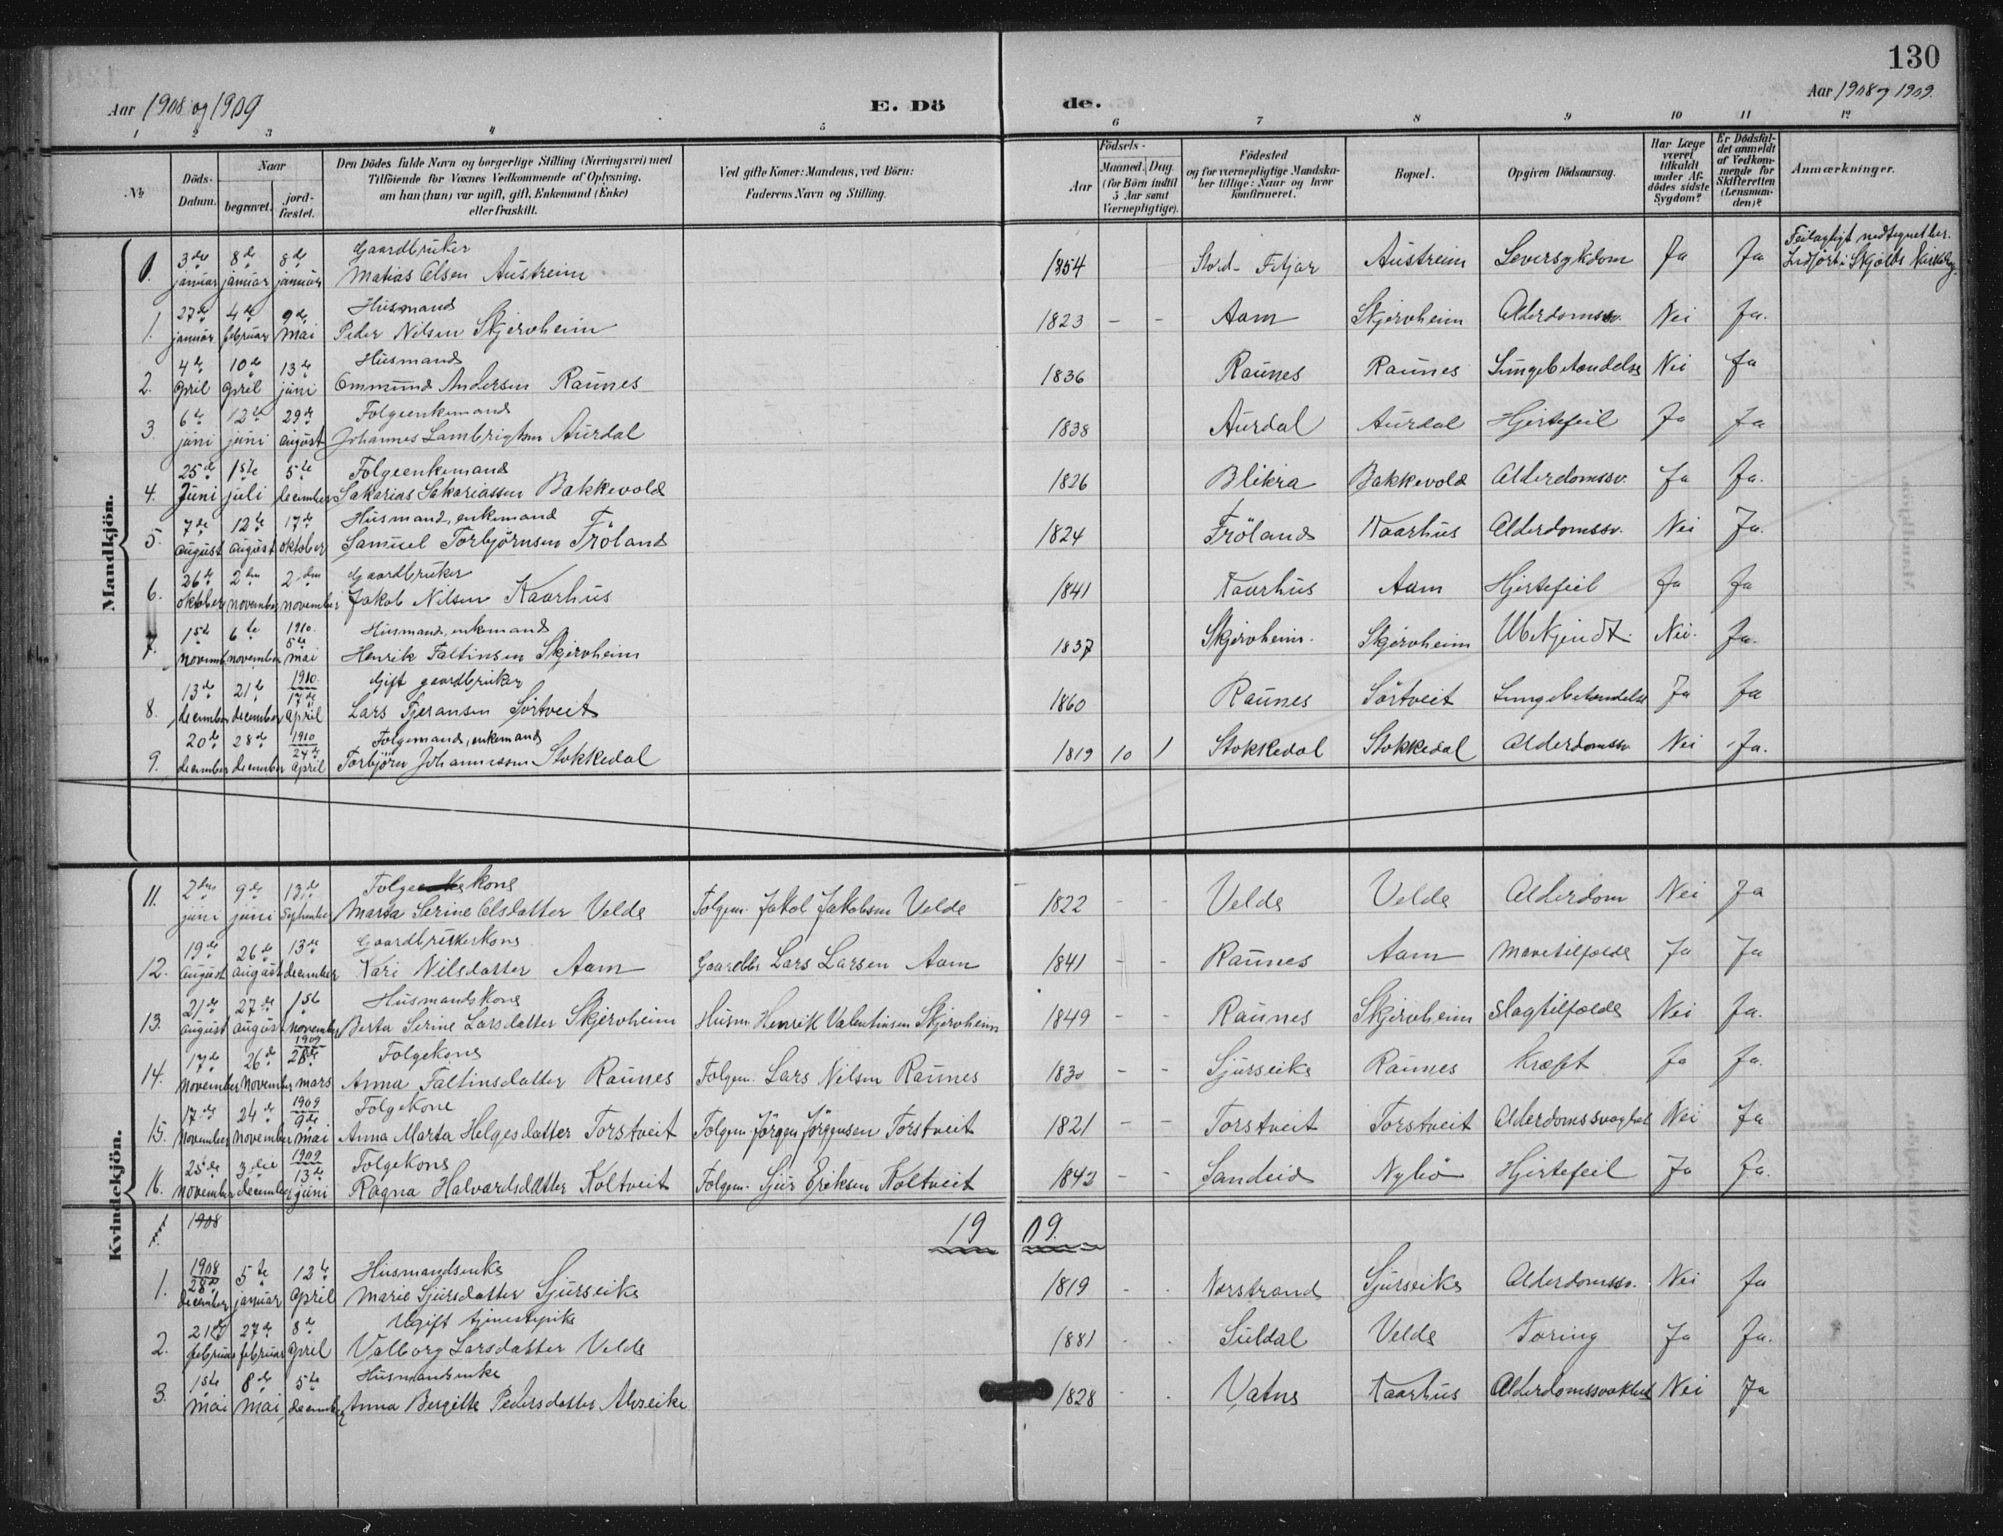 130
Aar 1908 og 1909 E. Dö de. Aar 1908 og 1909.
1 2 3 4 5 6 7 8 9 10 11 12
№ Döds-Datum. Naar begravet. jord-fæstet. Den Dödes fulde Navn og borgerlige Stilling (Næringsvei) med Tilföiende for Voxnes Vedkommende af Oplysning, om han (hun) var ugift, gift, Enkemand (Enke) eller fraskilt. Ved gifte Koner: Mandens, ved Börn: Faderens Navn og Stilling. Födsels- Aar Maaned. Dag. (for Börn indtil 5 Aar samt Værnepligtige). Födested og for værnepligtige Mandskaber tillige: Naar og hvor konfirmeret. Bopæl. Opgiven Dödsaarsag. Har Læge været tilkaldt under Afdödes sidste Sygdom? Er Dödsfaldet anmeldt af Vedkommende for Skifteretten (Lensmanden)? Anmærkninger.
Mandkjön.
3de 8de 8de Gaardbruker Feilagtigt nedtegnet her.
januar januar januar Matias Olsen Austreim 1854 Stord - Fitjar Austreim Leversykdom Ja Ja Indfört i Skjolds
27de 4de 9de Husmand
1. januar februar mai Peder Nilsen Skjerveheim 1823 - - Aam Skjerveheim Alderdomssv. Nei Ja.
4de 10de 13de Husmand
2. April April juni Ommund Andersen Raunes 1836 Raunes Raunes Lungebetændelse Nei Ja
6te 12te 29de Folgeenkemand
3. juni juni august Johannes Lambrigtsen Aurdal 1838 Aurdal Aurdal Hjertefeil Ja Ja
25de 1ste 5te Folgeenkemand
4. Juni juli december Sakarias Sakariassen Bakkevold 1826 Blikra Bakkevold Alderdomssv. Ja Ja.
7de 12te 17de Husmand, enkemand
5. august august oktober Samuel Torbjörnsen Fröland 1824 Fröland Kaarhus Alderdomssv. Nei Ja.
26de 2den 2den Gaardbruker
6. oktober november november Jakob Nilsen Kaarhus 1841 Kaarhus Aam Hjertefeil Ja Ja
1ste 6te 1910. 5te Husmand, enkemand
7. november november mai Henrik Faltinsen Skjerveheim 1837 Skjerveheim. Skjerveheim Ubekjendt. Nei. Ja.
13de 21de 1910. 17de Gift gaardbruker
8. december december april Lars Tjeransen Sörtveit 1860 Raunes Sörtveit Lungebetændelse Ja Ja
20de 28de 1910 24de Folgemand, enkemand
9. december december april Torbjörn Johannessen Stokkedal 1819 10 1 Stokkedal Stokkedal Alderdomssv Nei Ja.
Kvindekjön.
2den 9de 13de Folgekone
11. juni juni September Marta Serine Olsdatter Velde Folgem. Jakob Jakobsen Velde 1822 - - Velde Velde Alderdom Nei Ja
19de 26de 13de Gaardbrukerkone
12. august august december Kari Nilsdatter Aam Gaardbr Lars Larsen Aam 1841 - - Raunes Aam Mavetilfælde Ja Ja
21de 27de 1ste Husmandskone
13. august august november Berta Serine Larsdatter Skjerveheim Husm Henrik Valentinsen Skjerveheim 1849 - - Raunes Skjerveheim Slagtilfælde Nei Ja.
17de 26de 1909 28de Folgekone
14. november november mars Anna Faltinsdatter Raunes Folgem. Lars Nilsen Raunes 1830 - - Sjurseike Raunes Kræft Ja Ja.
17de 24de 1909 9de Folgekone
15. november november mai Anna Marta Helgesdatter Torstveit Folgem. Jörgen Jörgensen Torstveit 1821 - - Torstveit Torstveit Alderdomssvaghet Nei Ja
25de 3die 1909 13de Folgekone
16. november december juni Ragna Halvardsdatter Koltveit Folgem. Sjur Eriksen Koltveit 1842 - - Sandeid Nybö Hjertefeil Ja Ja.
1908 19 09.
1908 28de 5te 12te Husmandsenke
1. December januar April Marie Sjursdatter Sjurseike 1819 - - Norstrand Sjurseike Alderdomssv. Nei Ja
21de 27de 8de Ugift tjenestepike
2. februar februar April Valborg Larsdatter Velde 1881 - - Suldal Velde Tæring Ja Ja.
1ste 8de 5te Husmandsenke
3. mai mai december Anna Bergitte Pedersdatter Alvseike 1828 - - Vatne Kaarhus Nei Ja